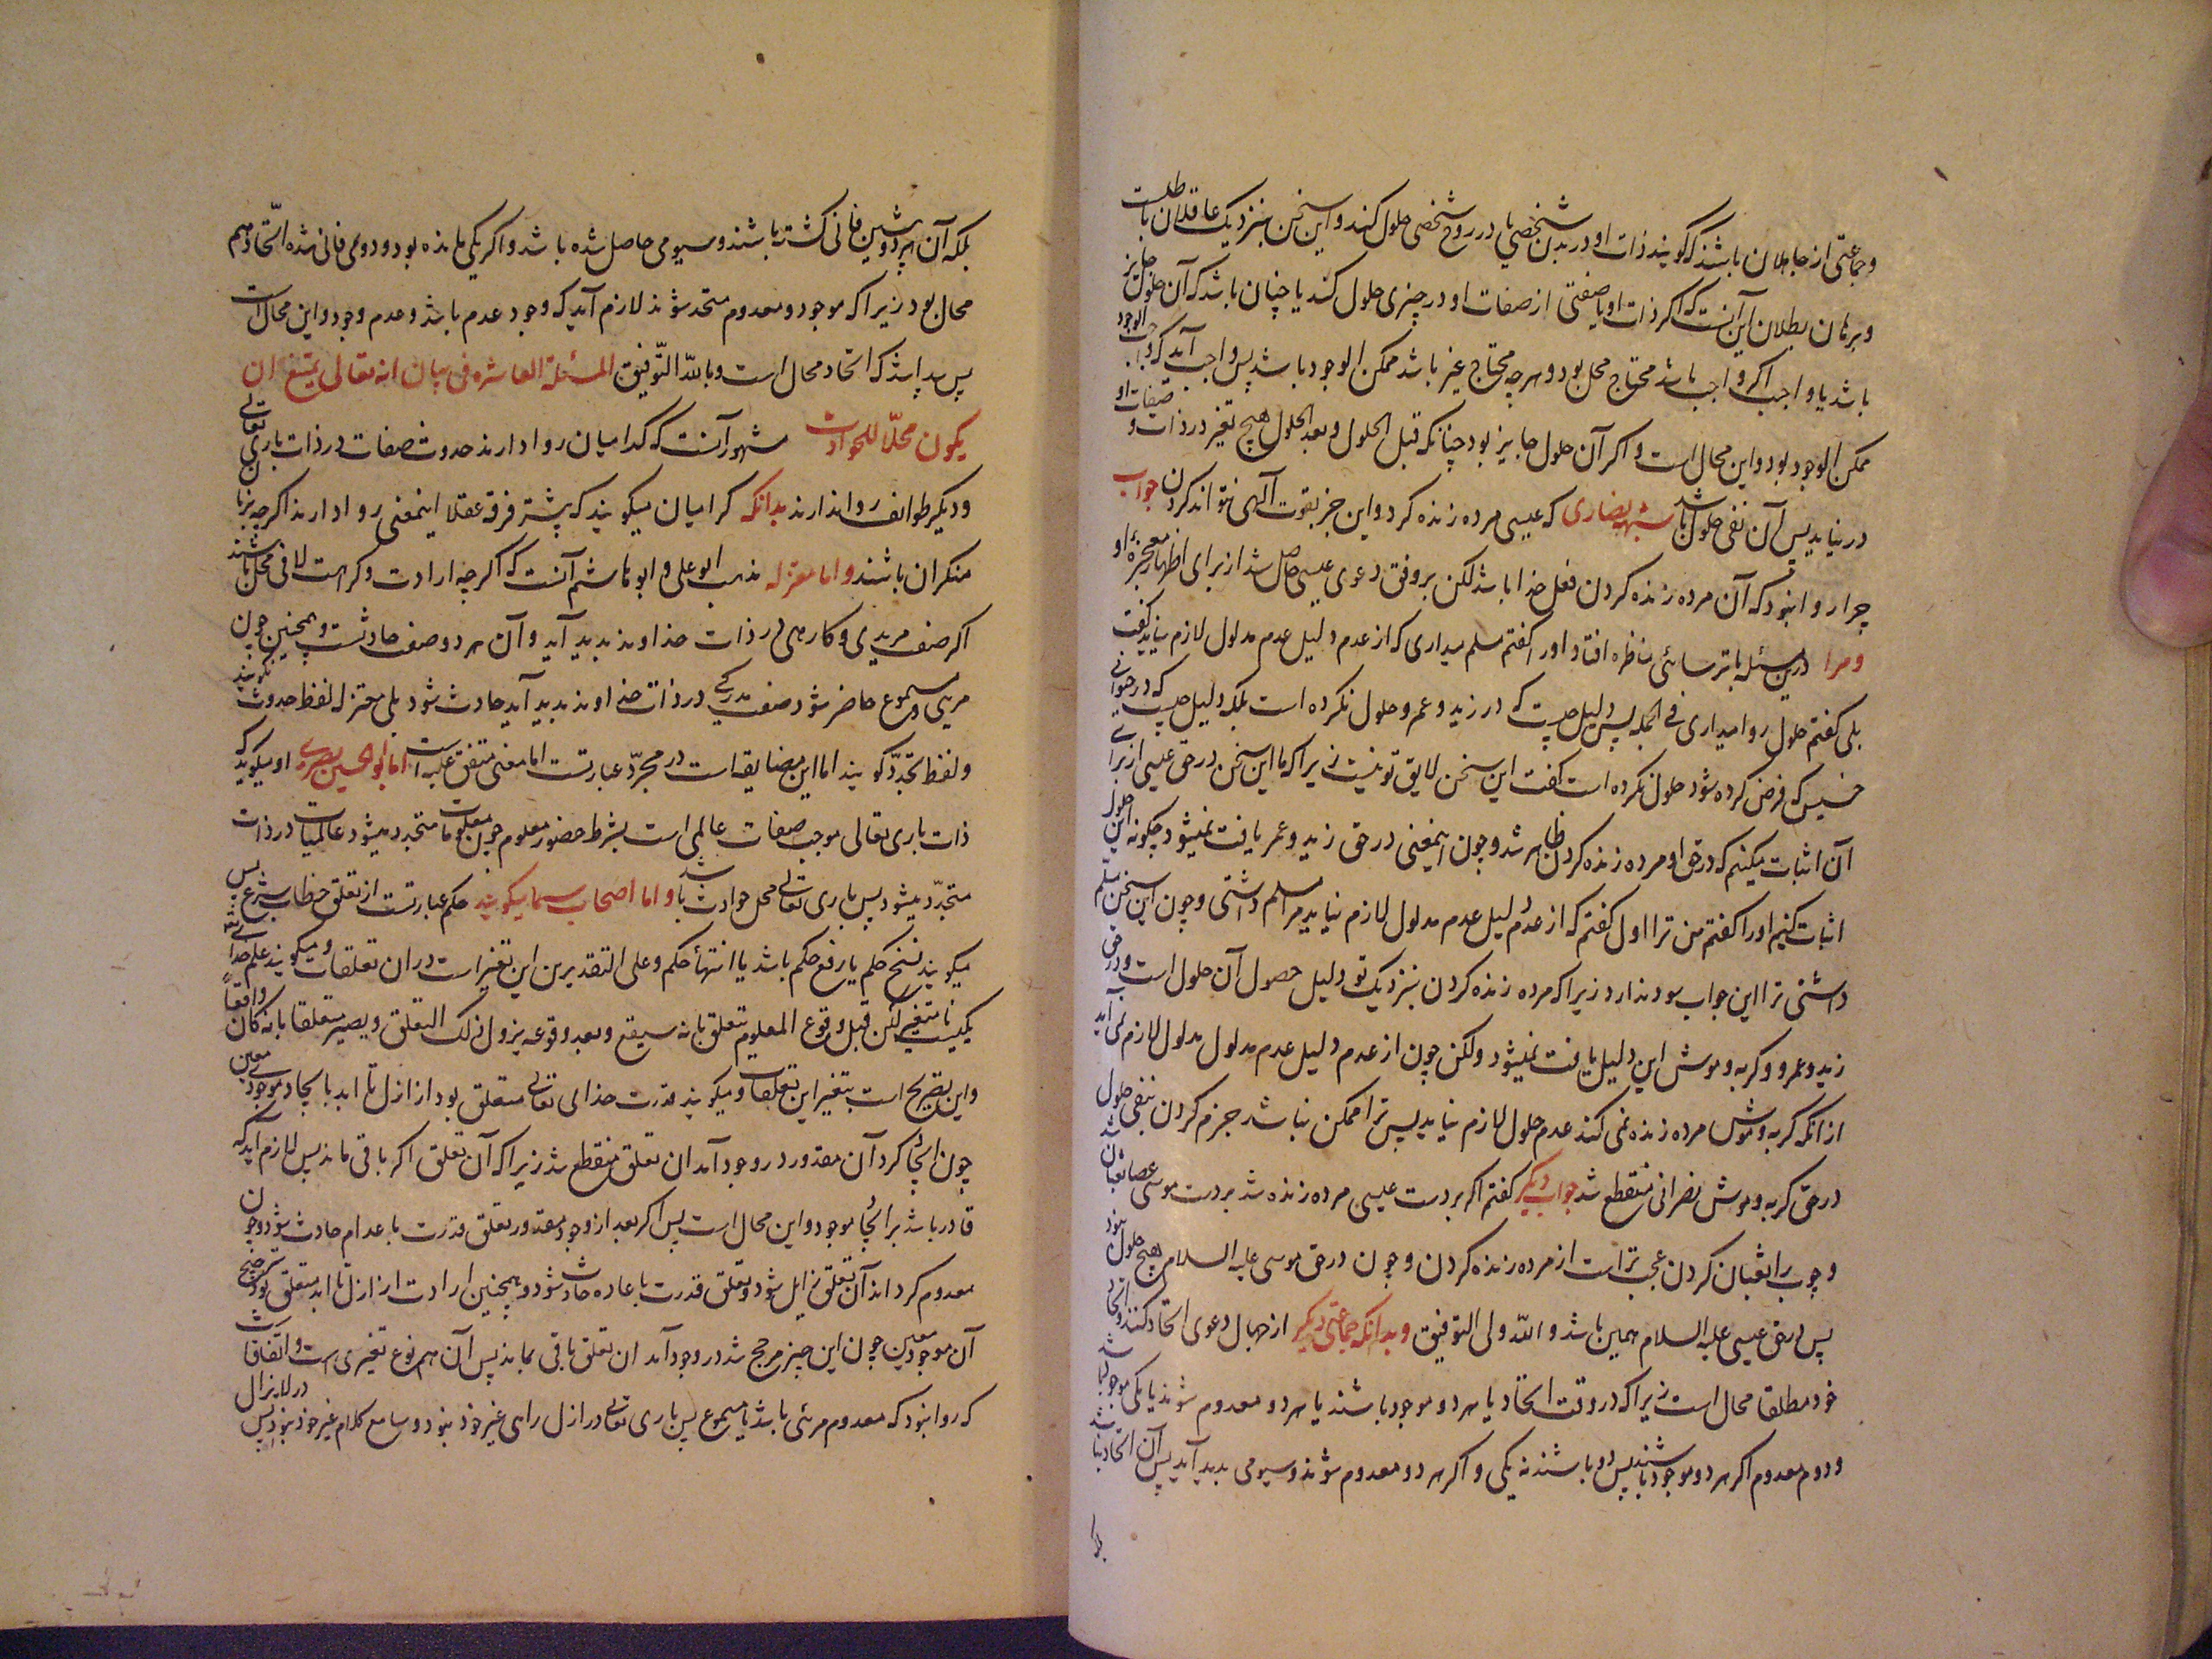 وجماعتی از جاهلان باشند که گویند ذات او در بدن شخصی یا در روح شخصی حلول کند و این سخن بنزدیک عاقلان باطلست
و برهان بطلان این آنست که اگر ذات او یا صفتی از صفات او در چیزی حلول کند یا چنان باشد که آن حلول جایز
باشد یا واجب اگر واجب باشد محتاج محل بود و هرچه محتاج غیر باشد ممکن الوجود باشد پس واجب الوجود
ممکن الوجود بود و این محال است و اگر آن حلول جایز بود چنانکه قبل الحلول و بعد الحلول هیچ تغیر در ذات و صفات او
در نیاید پس آن نفی حلول باشد شبهه نصاری که عیسی مرده زنده کرد و این جز بقوت آلهی نتواند کردن جواب
چرا روا نبود که آن مرده زنده کردن فعل خدا باشد لکن بر وفق دعوی عیسی حاصل شد از برای اظهار معجزهٔ او
و مرا درین مسئله با ترسائی مناظره افتاد او را گفتم مسلم میداری که از عدم دلیل عدم مدلول لازم نیاید گفت
بلی گفتم حلول روا میداری فی الجمله پس دلیل چیست که در زید و عمرو حلول نکرده است بلکه دلیل چیست که در حیوانی
خسیس که فرض کرده شود حلول نکرده است گفت این سخن لایق تو نیست زیرا که ما این سخن در حق عیسی از برای
آن اثبات میکنیم که در حق او مرده زنده کردن ظاهر شد و چون اینمعنی در حق زید و عمر یافت نمیشود چگونه این حلول
اثبات کنیم او را گفتم من ترا اول گفتم که از عدم دلیل عدم مدلول لازم نیاید مرا مسلم داشتی و چون این سخن مسلم
داشتی ترا این جواب سود ندارد زیرا که مرده زنده کردن بنزدیک تو دلیل حصول آن حلول است و در حق
زید و عمرو و گربه و موش این دلیل یافت نمیشود ولکن چون از عدم دلیل عدم مدلول لازم نمی آید
از آنکه گربه و موش مرده زنده نمی کند عدم حلول لازم نیاید پس ترا ممکن نباشد جزم کردن بنفی حلول
در حق گربه و موش نصرانی منقطع شد جواب دیگر گفتم اگر بر دست عیسی مرده زنده شد بر دست موسی عصا ثعبان شد
و چوب را ثعبان کردن عجب تر است از مرده زنده کردن و چون در حق موسی علیه السلام هیچ حلول نبود
پس در حق عیسی علیه السلام همین باشد و الله ولی التوفیق و بدانکه جماعتی دیگر از جهال دعوی اتحاد کنند و اتحاد
خود مطلقا محال است زیرا که در وقت اتحاد یا هر دو موجود باشند یا هر دو معدوم شوند یا یکی موجود باشد
و دوم معدوم اگر هر دو موجود باشند پس دو باشند نه یکی و اگر هر دو معدوم شوند و سیومی پدید آید پس آن اتحاد نباشد
بلکه آن هر دو پیشین فانی گشته باشند و سیومی حاصل شده باشد و اگر یکی مانده بود و دومی فانی شده اتّحاد هم
محال بود زیرا که موجود و معدوم متحد شوند لازم آید که وجود عدم باشد و عدم وجود و این محال است
پس پیدا شد که اتحاد محال است و بالله التّوفیق المسئلة العاشرة فی بیان انه تعالی یمتنع ان
یکون محلّا للحوادث مشهور آنست که کرامیان روا دارند حدوث صفات در ذات باری تعالی
و دیگر طوایف روا ندارند بدانکه کرامیان میگویند که بیشتر فرق عقلا اینمعنی روا دارند اگرچه بزبان
منکر آن باشند و اما معتزله مذهب ابو علی و ابو هاشم آنست که اگرچه ارادت و کراهت لا فی محل باشد
اگر صفت مریدی و کارهی در ذات خداوند پدید آید و آن هر دو صفت حادثست و همچنین چون
مرئی و مسموع حاضر شود صفت مدرکی در ذات خداوند پدید آید حادث شود بلی معتزله لفظ حدوث نگویند
و لفظ تجدّد گویند اما این مضایقه است در مجرّد عبارتست اما معنی متفق علیه است اما ابو الحسین بصری او میگوید که
ذات باری تعالی موجب صفات عالمی است بشرط حضور معلوم چون معلومات متجدد میشود عالمیات در ذات
متجدّد میشود پس باری تعالی محل حوادث باشد و اما اصحاب سما میگویند حکم عبارتست از تعلق خطاب شرع پس
میگویند نسخ حکم یا رفع حکم باشد یا انتهاء حکم و علی التقدیرین این تغیر است در آن تعلقات و میگویند علم خدا
یکیست نامتغیر لکن قبل وقوع المعلوم متعلق بانه سیقع و بعد وقوعه یزول ذلک التعلق و یصیر متعلقا بانه کان واقعاً
و این تصریح است بتغیر این تعلقات و میگویند قدرت خدای تعالی متعلق بود از ازل تا ابد بایجاد موجود معین
چون ایجاد کرد آن مقدور در وجود آمد آن تعلق منقطع شد زیرا که آن تعلق اگر باقی ماند پس لازم آید که
قادر باشد بر ایجاد موجود و این محال است پس اگر بعد از وجود مقدور تعلق قدرت باعدام حادث شود و چون
معدوم کرد اند آن تعلق زایل شود و تعلق قدرت باعاده حادث شود و همچنین ارادت از ازل تا ابد متعلق بود بترجیح
آن موجود معین چون این چیز مرجح شد در وجود آمد آن تعلق باقی نماند پس آن هم نوع تغیری است و اتّفاق است
که روا نبود که معدوم مرئی باشد یا مسموع پس باری تعالی در ازل رائی غیر خود نبود و سامع کلام غیر خود نبود پس در لایزال